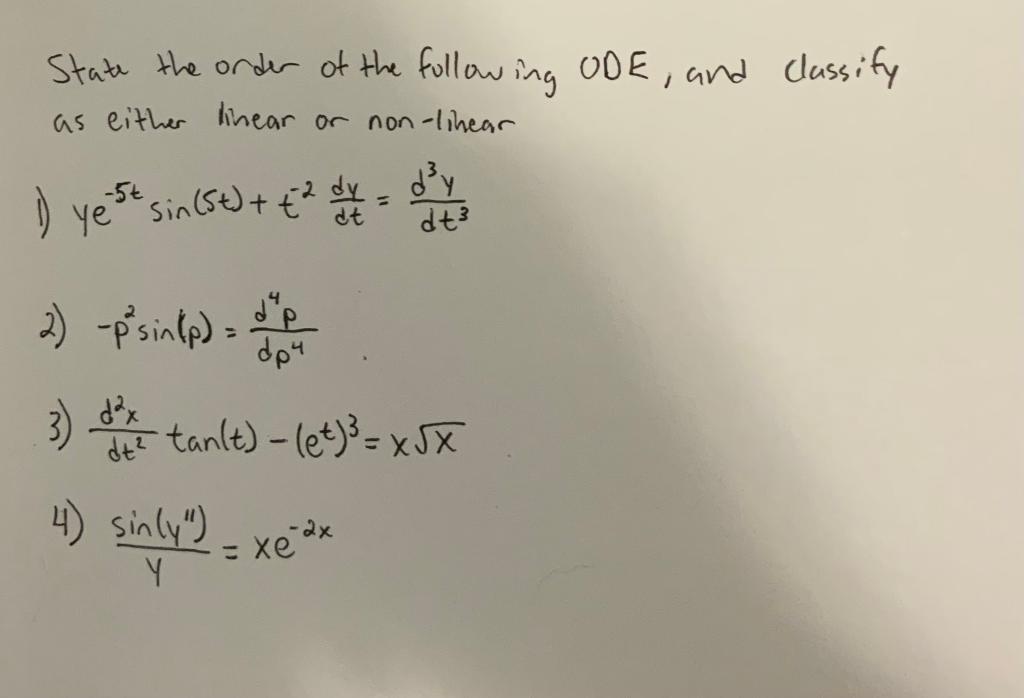 State the order of the following ODE, and classify
as either linear or non-linear
1) ye^{-5t} sin(5t) + t^{-2} dy/dt = d³y/dt³
2) -p² sin(p) = d⁴p/dp⁴
3) d²x/dt² tan(t) - (e^t)³ = x√x
4) sin(y")/y = xe^{-2x}